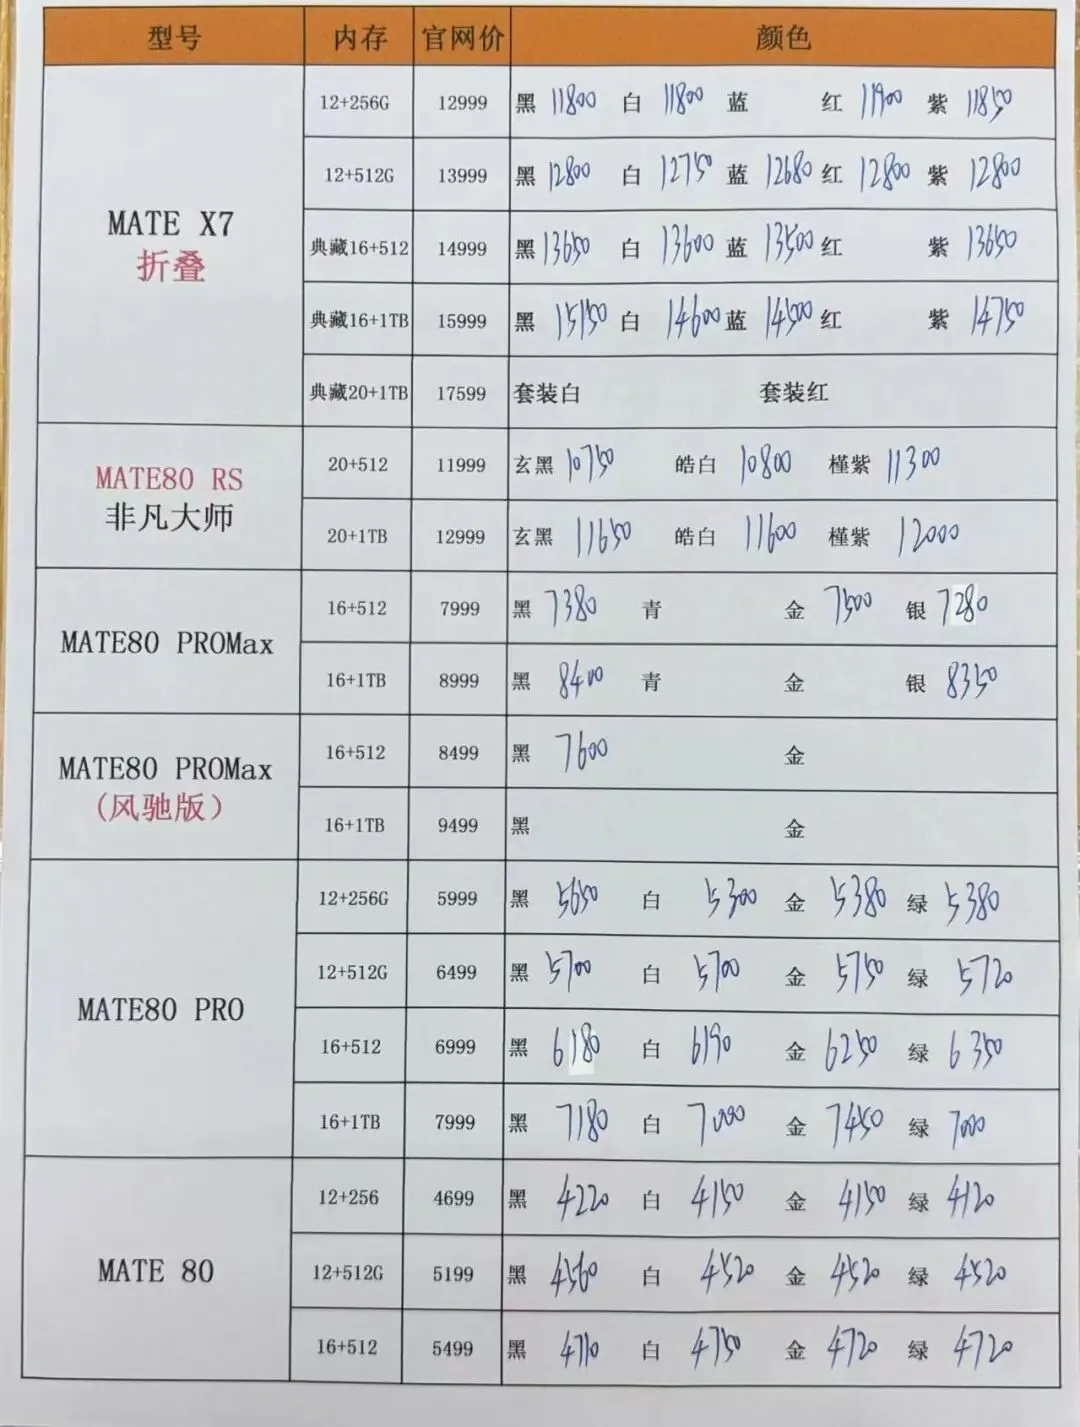 型号 内存 官网价 颜色
12+256G 12999 黑 11800 白 11800 蓝 红 11900 紫 11850
12+512G 13999 黑 12800 白 12750 蓝 12680 红 12800 紫 12800
MATE X7
折叠
典藏16+512 14999 黑 13650 白 13600 蓝 13500 红 紫 13650
典藏16+1TB 15999 黑 15150 白 14600 蓝 14500 红 紫 14750
典藏20+1TB 17599 套装白 套装红
MATE80 RS
非凡大师
20+512 11999 玄黑 10750 皓白 10800 槿紫 11300
20+1TB 12999 玄黑 11650 皓白 11600 槿紫 12000
MATE80 PROMax
16+512 7999 黑 7380 青 金 7500 银 7280
16+1TB 8999 黑 8400 青 金 银 8350
MATE80 PROMax
(风驰版)
16+512 8499 黑 7600 金
16+1TB 9499 黑 金
MATE80 PRO
12+256G 5999 黑 5650 白 5300 金 5380 绿 5380
12+512G 6499 黑 5700 白 5700 金 5750 绿 5720
16+512 6999 黑 6180 白 6190 金 6250 绿 6350
16+1TB 7999 黑 7180 白 7000 金 7450 绿 7000
MATE 80
12+256 4699 黑 4220 白 4150 金 4150 绿 4120
12+512G 5199 黑 4560 白 4520 金 4520 绿 4520
16+512 5499 黑 4710 白 4750 金 4720 绿 4720